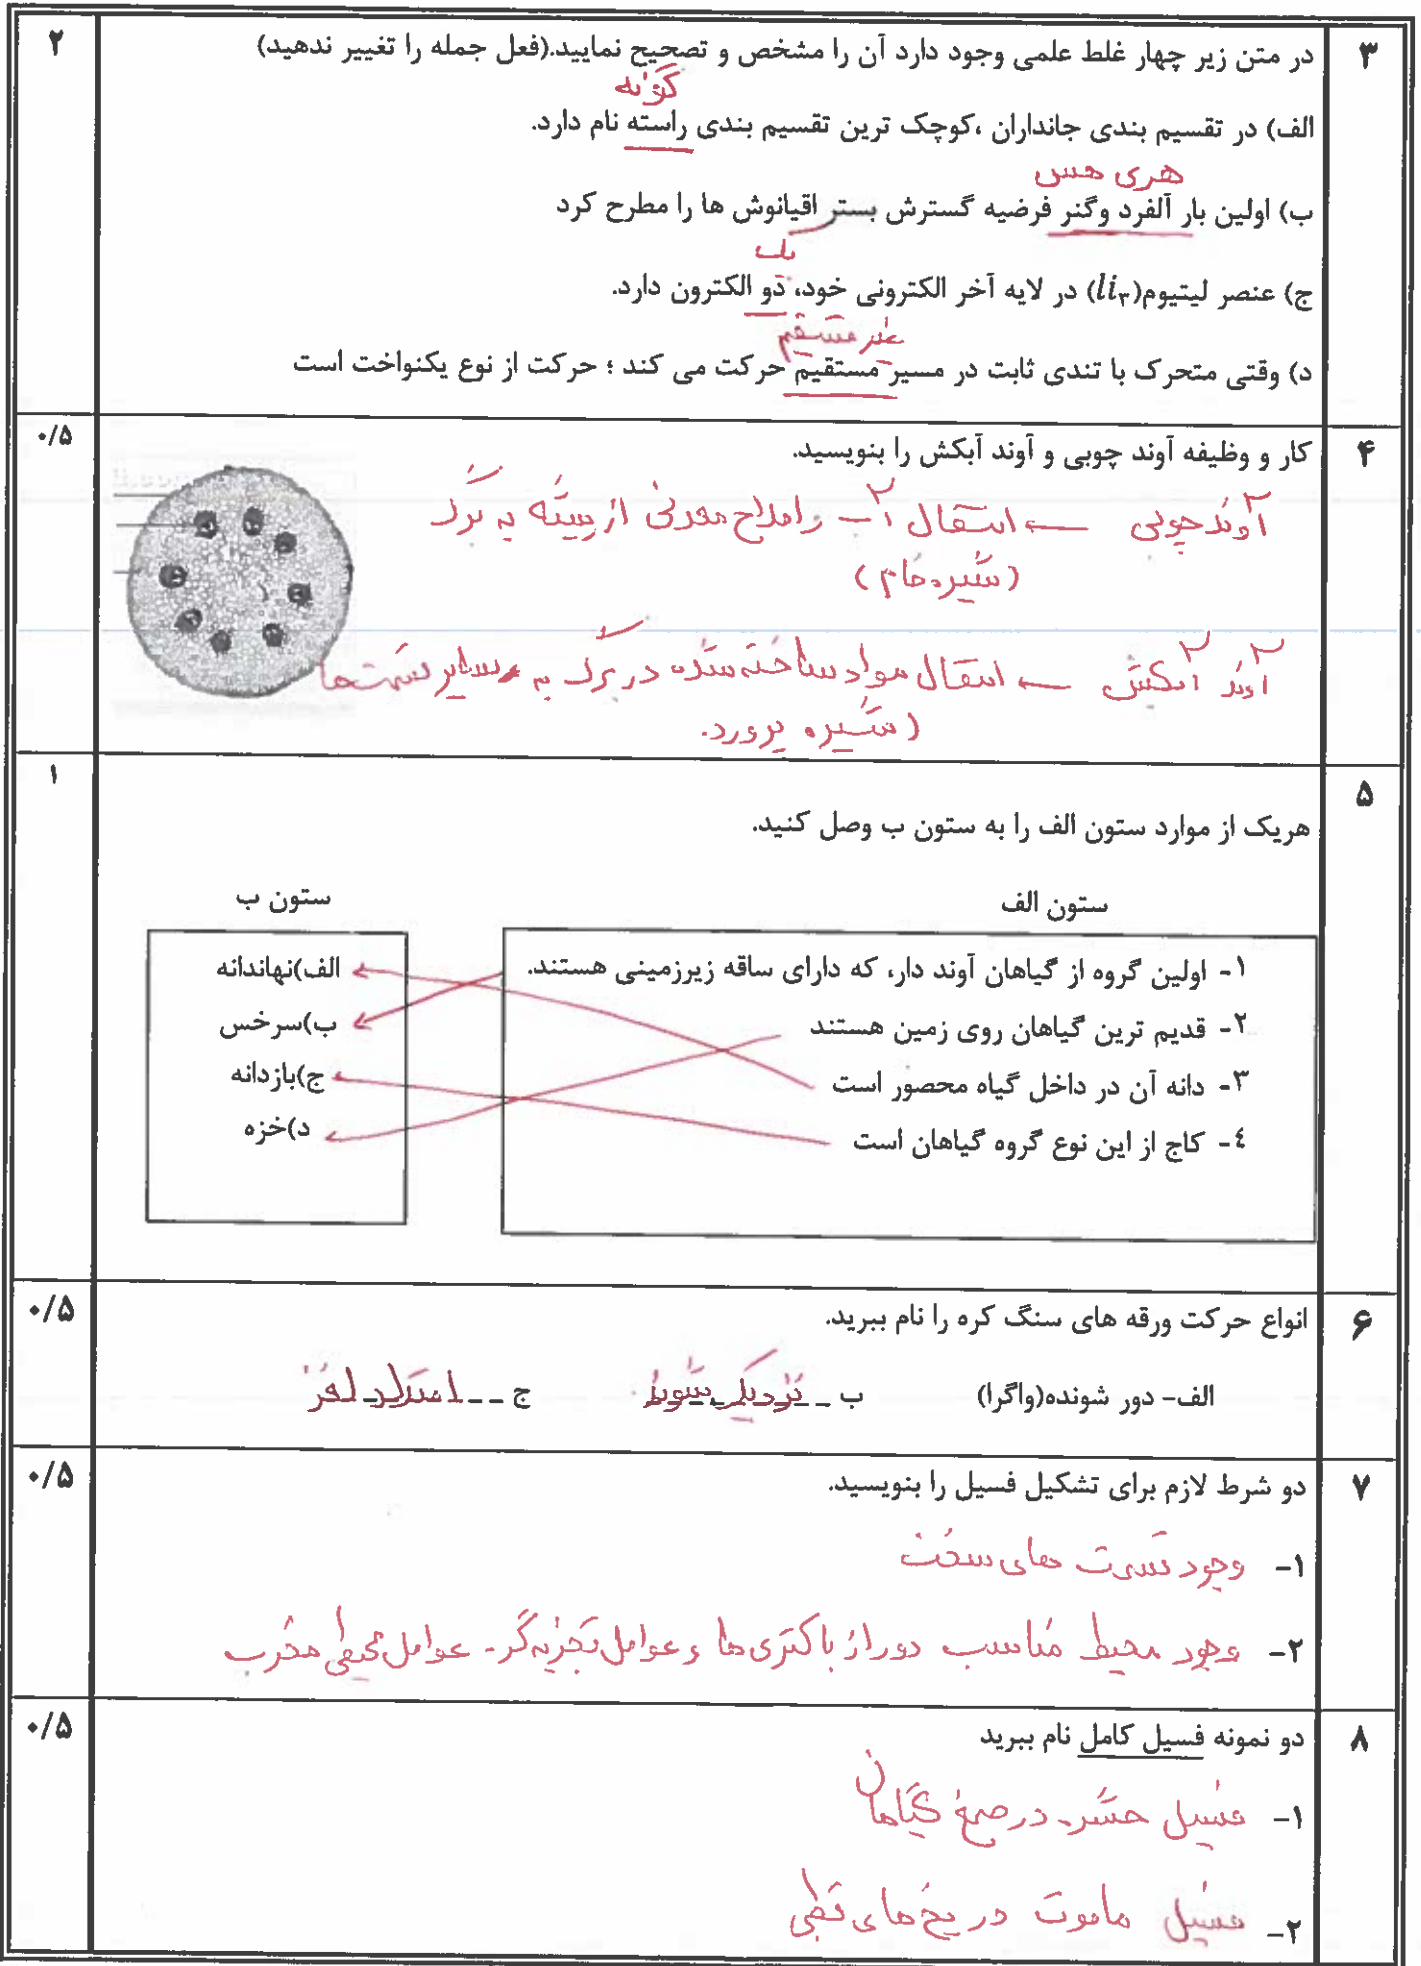 ۳
در متن زیر چهار غلط علمی وجود دارد آن را مشخص و تصحیح نمایید.(فعل جمله را تغییر ندهید)
۲
گونه
الف) در تقسیم بندی جانداران ،کوچک ترین تقسیم بندی راسته نام دارد.
هری هس
ب) اولین بار آلفرد وگنر فرضیه گسترش بستر اقیانوش ها را مطرح کرد
یک
ج) عنصر لیتیوم(li۳) در لایه آخر الکترونی خود، دو الکترون دارد.
غیر مستقیم
د) وقتی متحرک با تندی ثابت در مسیر مستقیم حرکت می کند ؛ حرکت از نوع یکنواخت است
۴
کار و وظیفه آوند چوبی و آوند آبکش را بنویسید.
۰/۵
آوند چوبی ← انتقال آب و املاح معدنی از ریشه به برگ
(شیره خام)
آوند آبکش ← انتقال مواد ساخته شده در برگ به سایر قسمت ها
(شیره پرورد.
۵
۱
هریک از موارد ستون الف را به ستون ب وصل کنید.
ستون الف
ستون ب
۱- اولین گروه از گیاهان آوند دار، که دارای ساقه زیرزمینی هستند.
الف)نهاندانه
۲- قدیم ترین گیاهان روی زمین هستند
ب)سرخس
۳- دانه آن در داخل گیاه محصور است
ج)بازدانه
٤- کاج از این نوع گروه گیاهان است
د)خزه
۶
انواع حرکت ورقه های سنگ کره را نام ببرید.
۰/۵
الف- دور شونده(واگرا) ب نزدیک شونده ج امتداد لغز
۷
دو شرط لازم برای تشکیل فسیل را بنویسید.
۰/۵
۱- وجود قسمت های سخت
۲- وجود محیط مناسب دور از باکتری ها و عوامل تجزیه گر- عوامل محیطی مخرب
۸
دو نمونه فسیل کامل نام ببرید
۰/۵
۱- فسیل حشره در صمغ گیاهان
۲- فسیل ماموت در یخ های قطبی